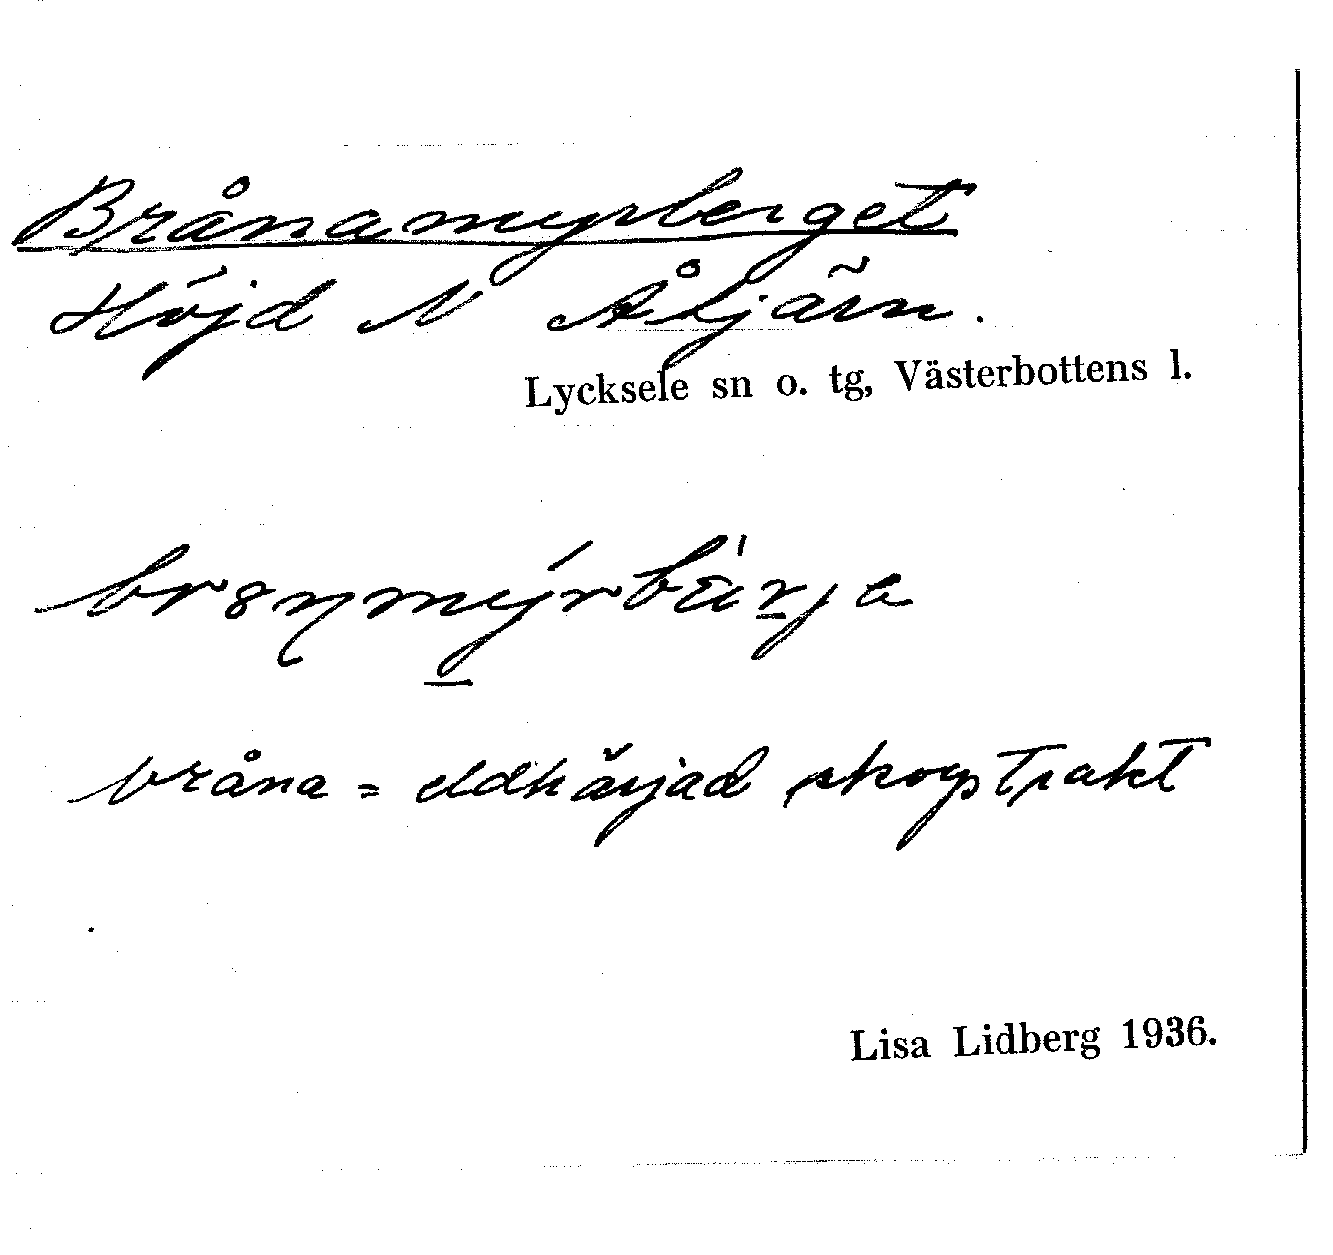 Brånamyrberget
Höjd N Åtjärn.
Lycksele sn o. tg, Västerbottens l.
bråna = eldhärjad skogstrakt
Lisa Lidberg 1936.